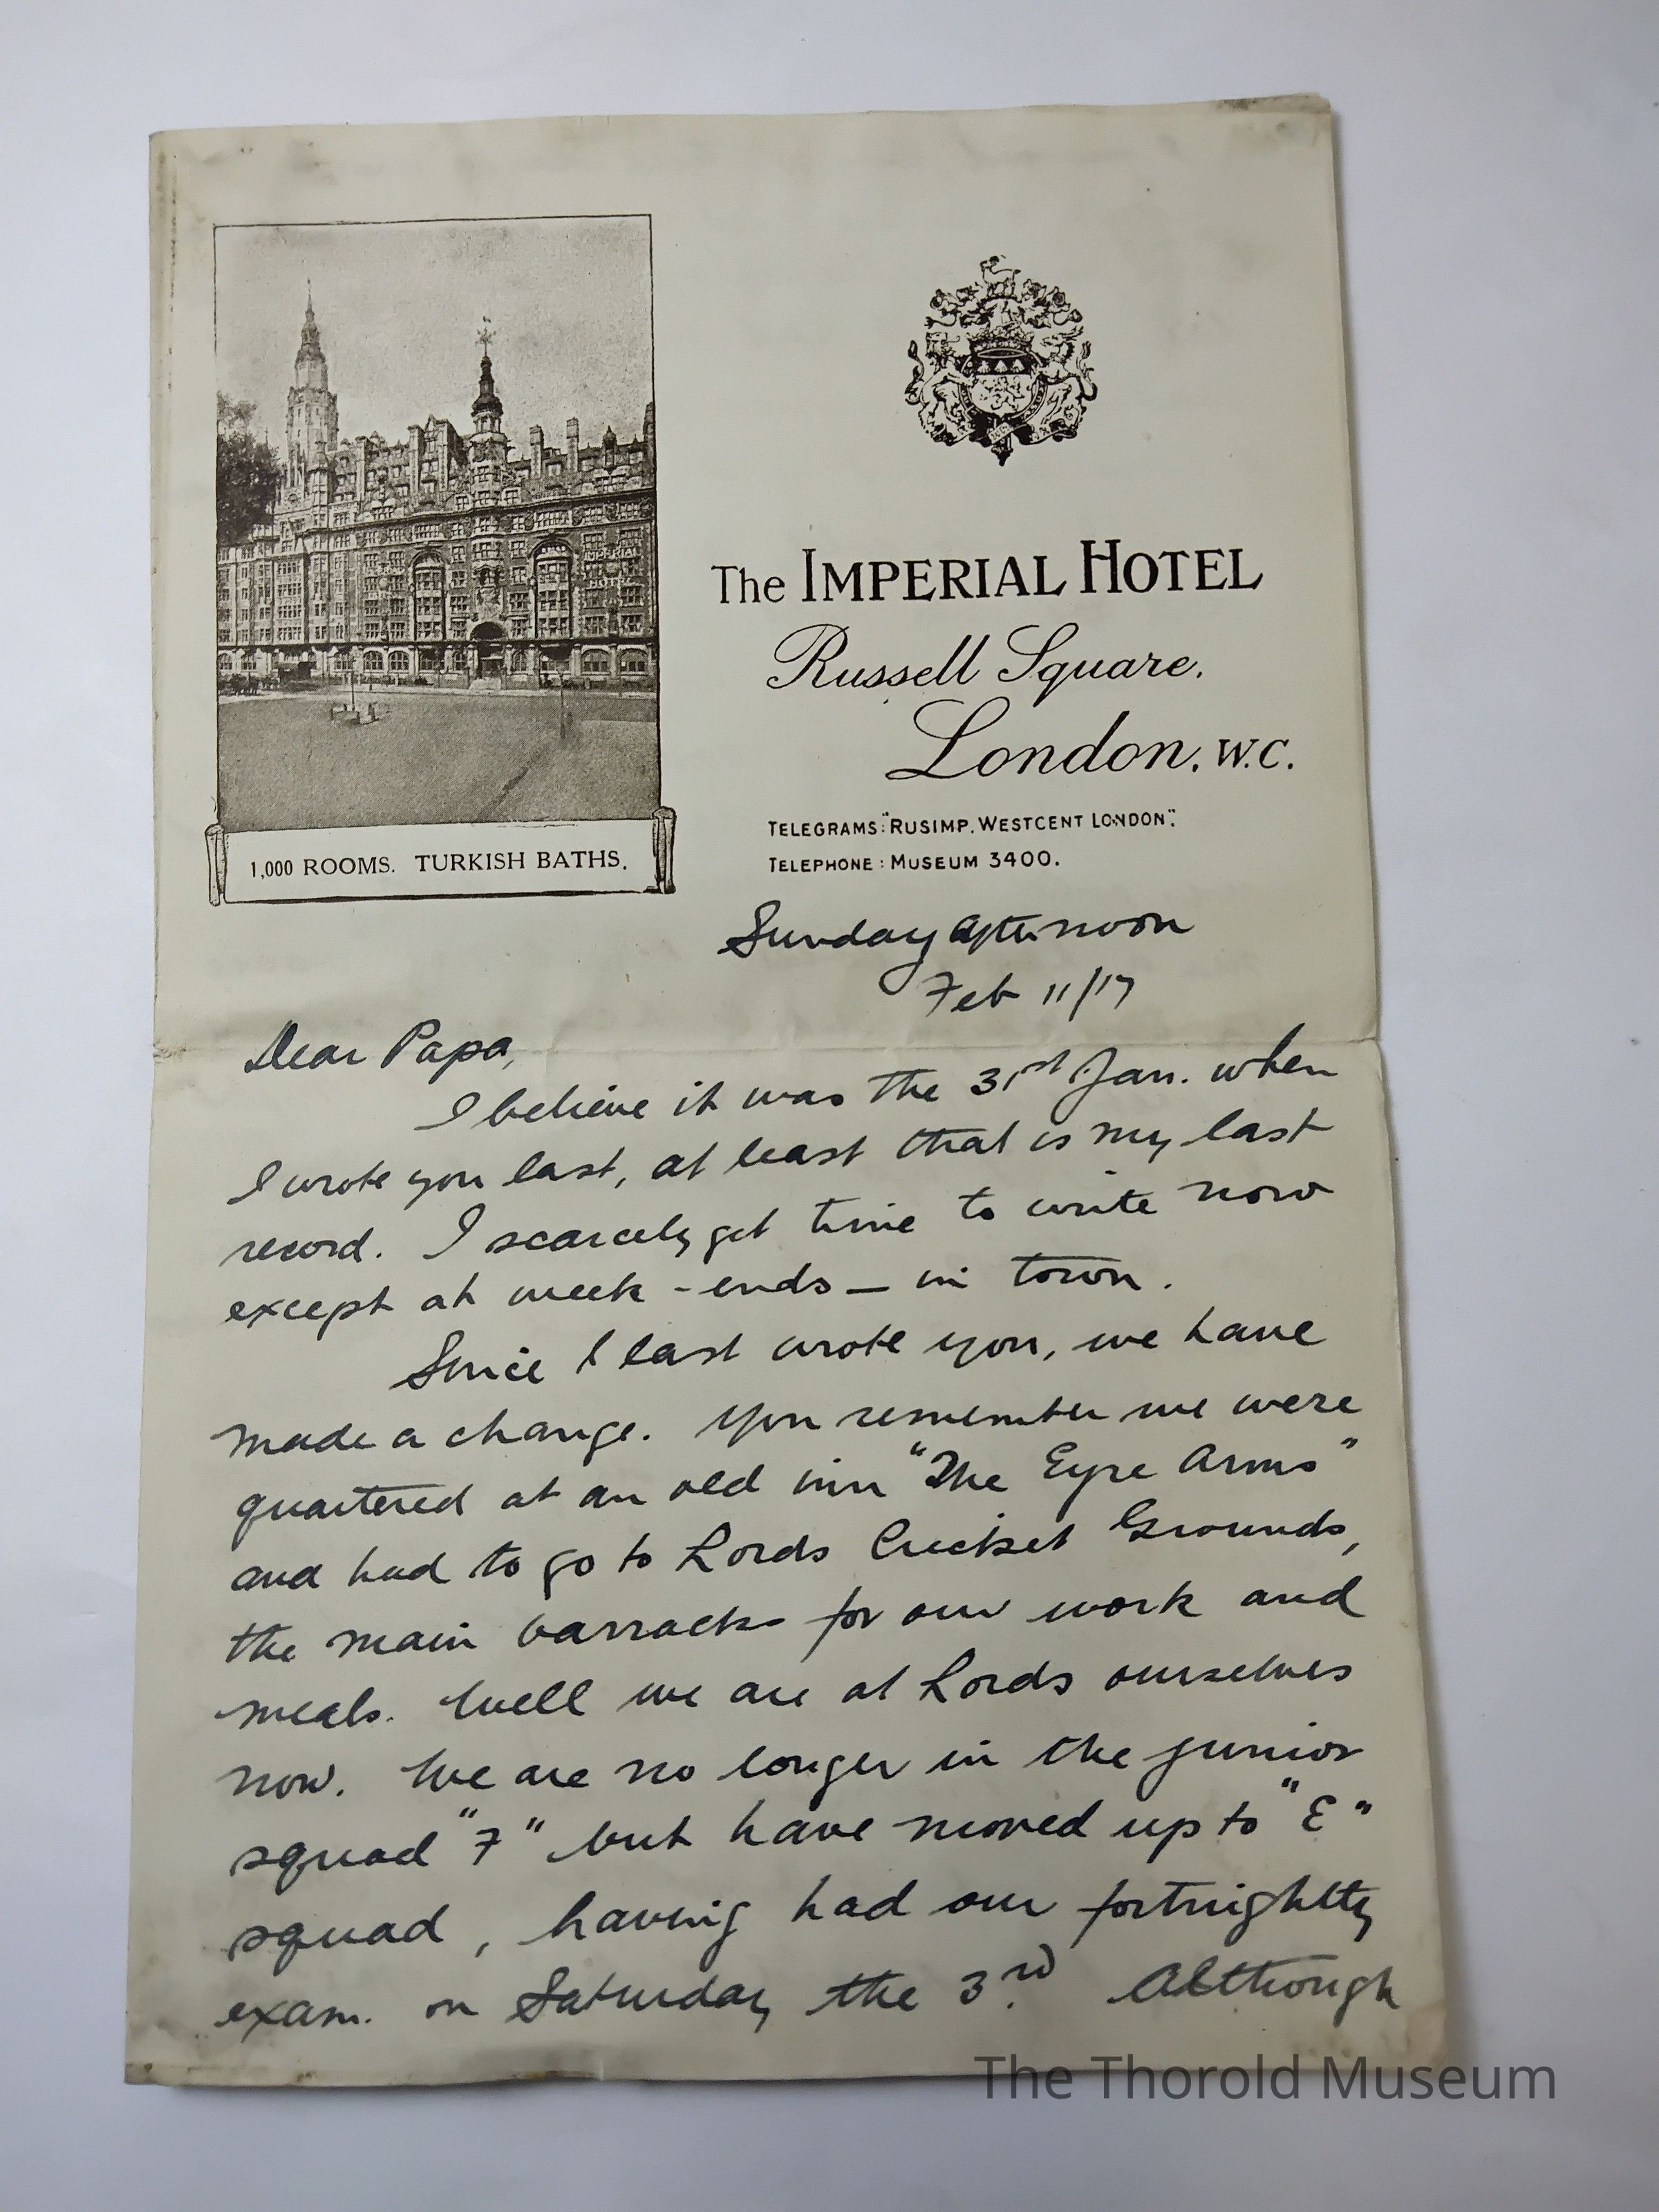 IMPERIAL
HOTEL
1,000 ROOMS. TURKISH BATHS.
The IMPERIAL HOTEL
Russell Square.
London. W.C.
TELEGRAMS: "RUSIMP. WESTCENT LONDON".
TELEPHONE: MUSEUM 3400.
Sunday afternoon
Feb 11/17
Dear Papa,
I believe it was the 31st Jan. when
I wrote you last, at least that is my last
record. I scarcely get time to write now
except at week-ends – in town.
Since I last wrote you, we have
made a change. You remember we were
quartered at an old inn "The Eyre Arms"
and had to go to Lords Cricket Grounds,
the main barracks for our work and
meals. Well we are at Lords ourselves
now. We are no longer in the junior
squad "F" but have moved up to "E"
squad, having had our fortnightly
exam. on Saturday the 3rd. Although
The Thorold Museum